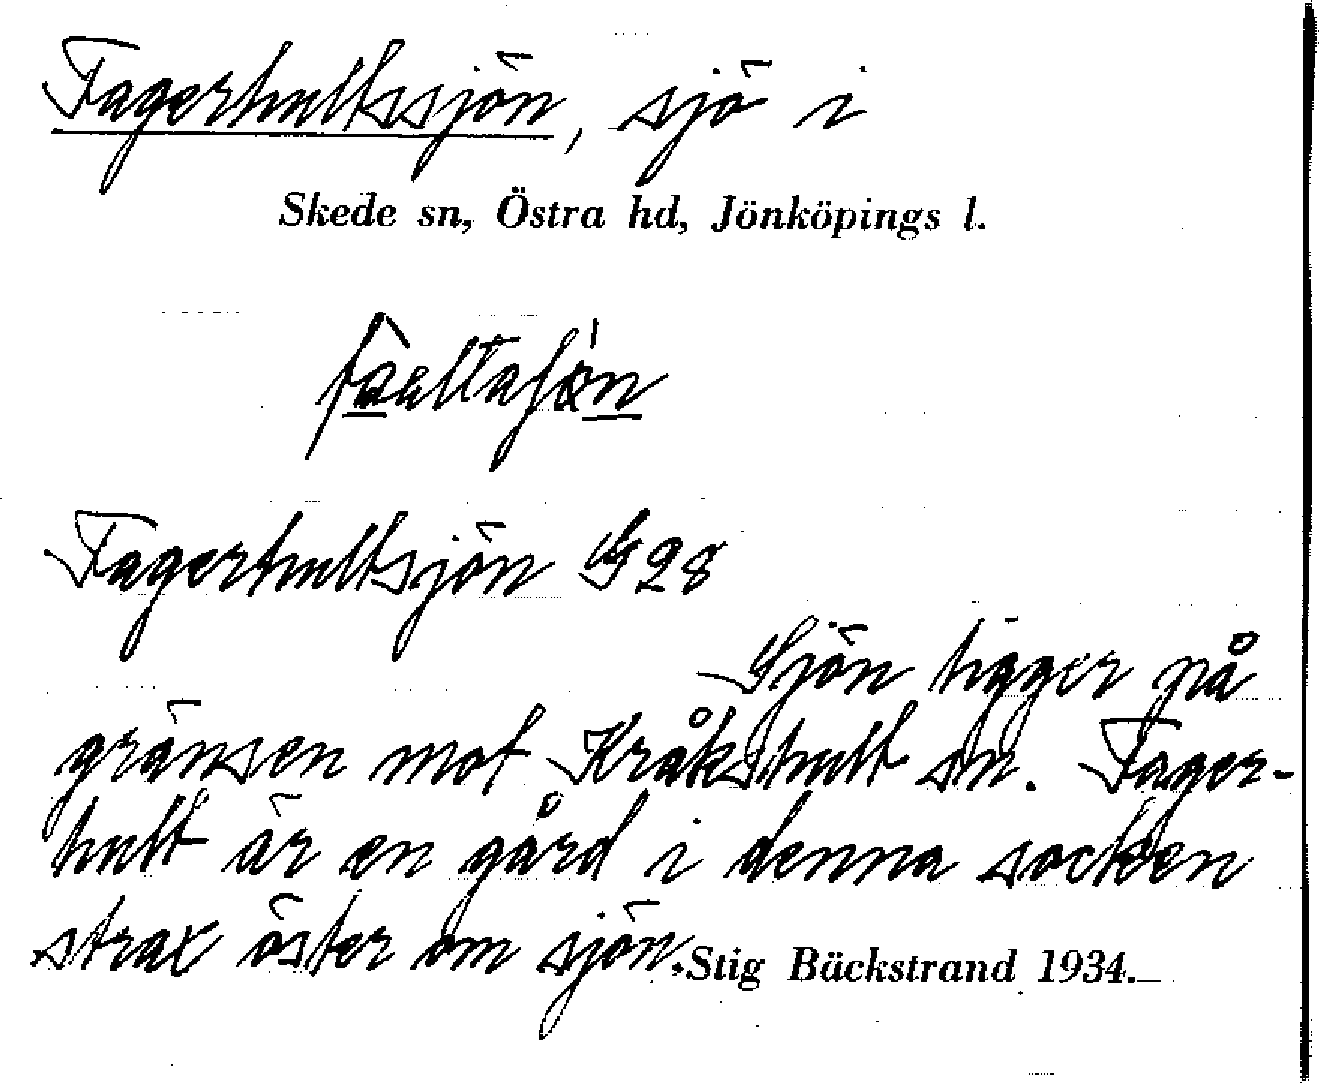 Fagerhultssjön, sjö i
Skede sn, Östra hd, Jönköpings l.
Fagerhultsjön G 28
Sjön ligger på
gränsen mot Kråkshult sn. Fager-
hult är en gård i denna socken
strax öster om sjön. Stig Bäckstrand 1934.